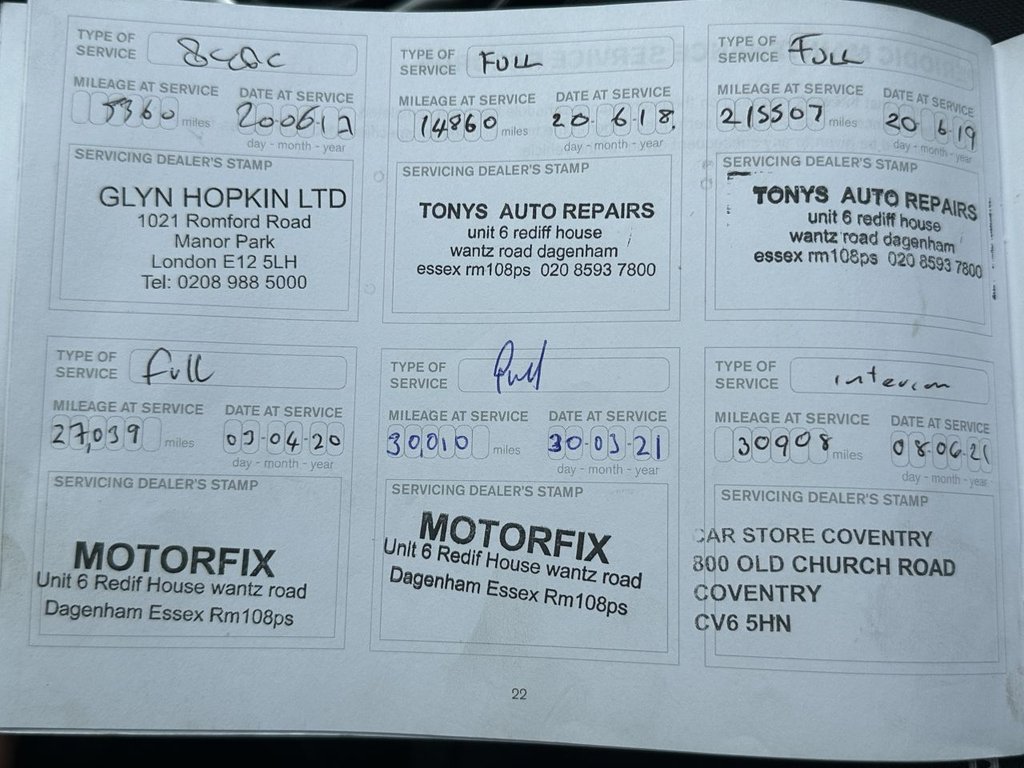 TYPE OF SERVICE
MILEAGE AT SERVICE DATE AT SERVICE
5360 miles 20 06 17
day - month - year
SERVICING DEALER'S STAMP
GLYN HOPKIN LTD
1021 Romford Road
Manor Park
London E12 5LH
Tel: 0208 988 5000
TYPE OF SERVICE FULL
MILEAGE AT SERVICE DATE AT SERVICE
14860 miles 20 6 18
day - month - year
SERVICING DEALER'S STAMP
TONYS AUTO REPAIRS
unit 6 rediff house
wantz road dagenham
essex rm108ps 020 8593 7800
TYPE OF SERVICE FULL
MILEAGE AT SERVICE DATE AT SERVICE
215507 miles 20 6 19
day - month - year
SERVICING DEALER'S STAMP
TONYS AUTO REPAIRS
unit 6 rediff house
wantz road dagenham
essex rm108ps 020 8593 7800
TYPE OF SERVICE Full
MILEAGE AT SERVICE DATE AT SERVICE
27,039 miles 03-04-20
day - month - year
SERVICING DEALER'S STAMP
MOTORFIX
Unit 6 Redif House wantz road
Dagenham Essex Rm108ps
TYPE OF SERVICE Full
MILEAGE AT SERVICE DATE AT SERVICE
30,010 miles 30-03-21
day - month - year
SERVICING DEALER'S STAMP
MOTORFIX
Unit 6 Redif House wantz road
Dagenham Essex Rm108ps
TYPE OF SERVICE interim
MILEAGE AT SERVICE DATE AT SERVICE
30908 miles 08-06-21
day - month - year
SERVICING DEALER'S STAMP
CAR STORE COVENTRY
800 OLD CHURCH ROAD
COVENTRY
CV6 5HN
22